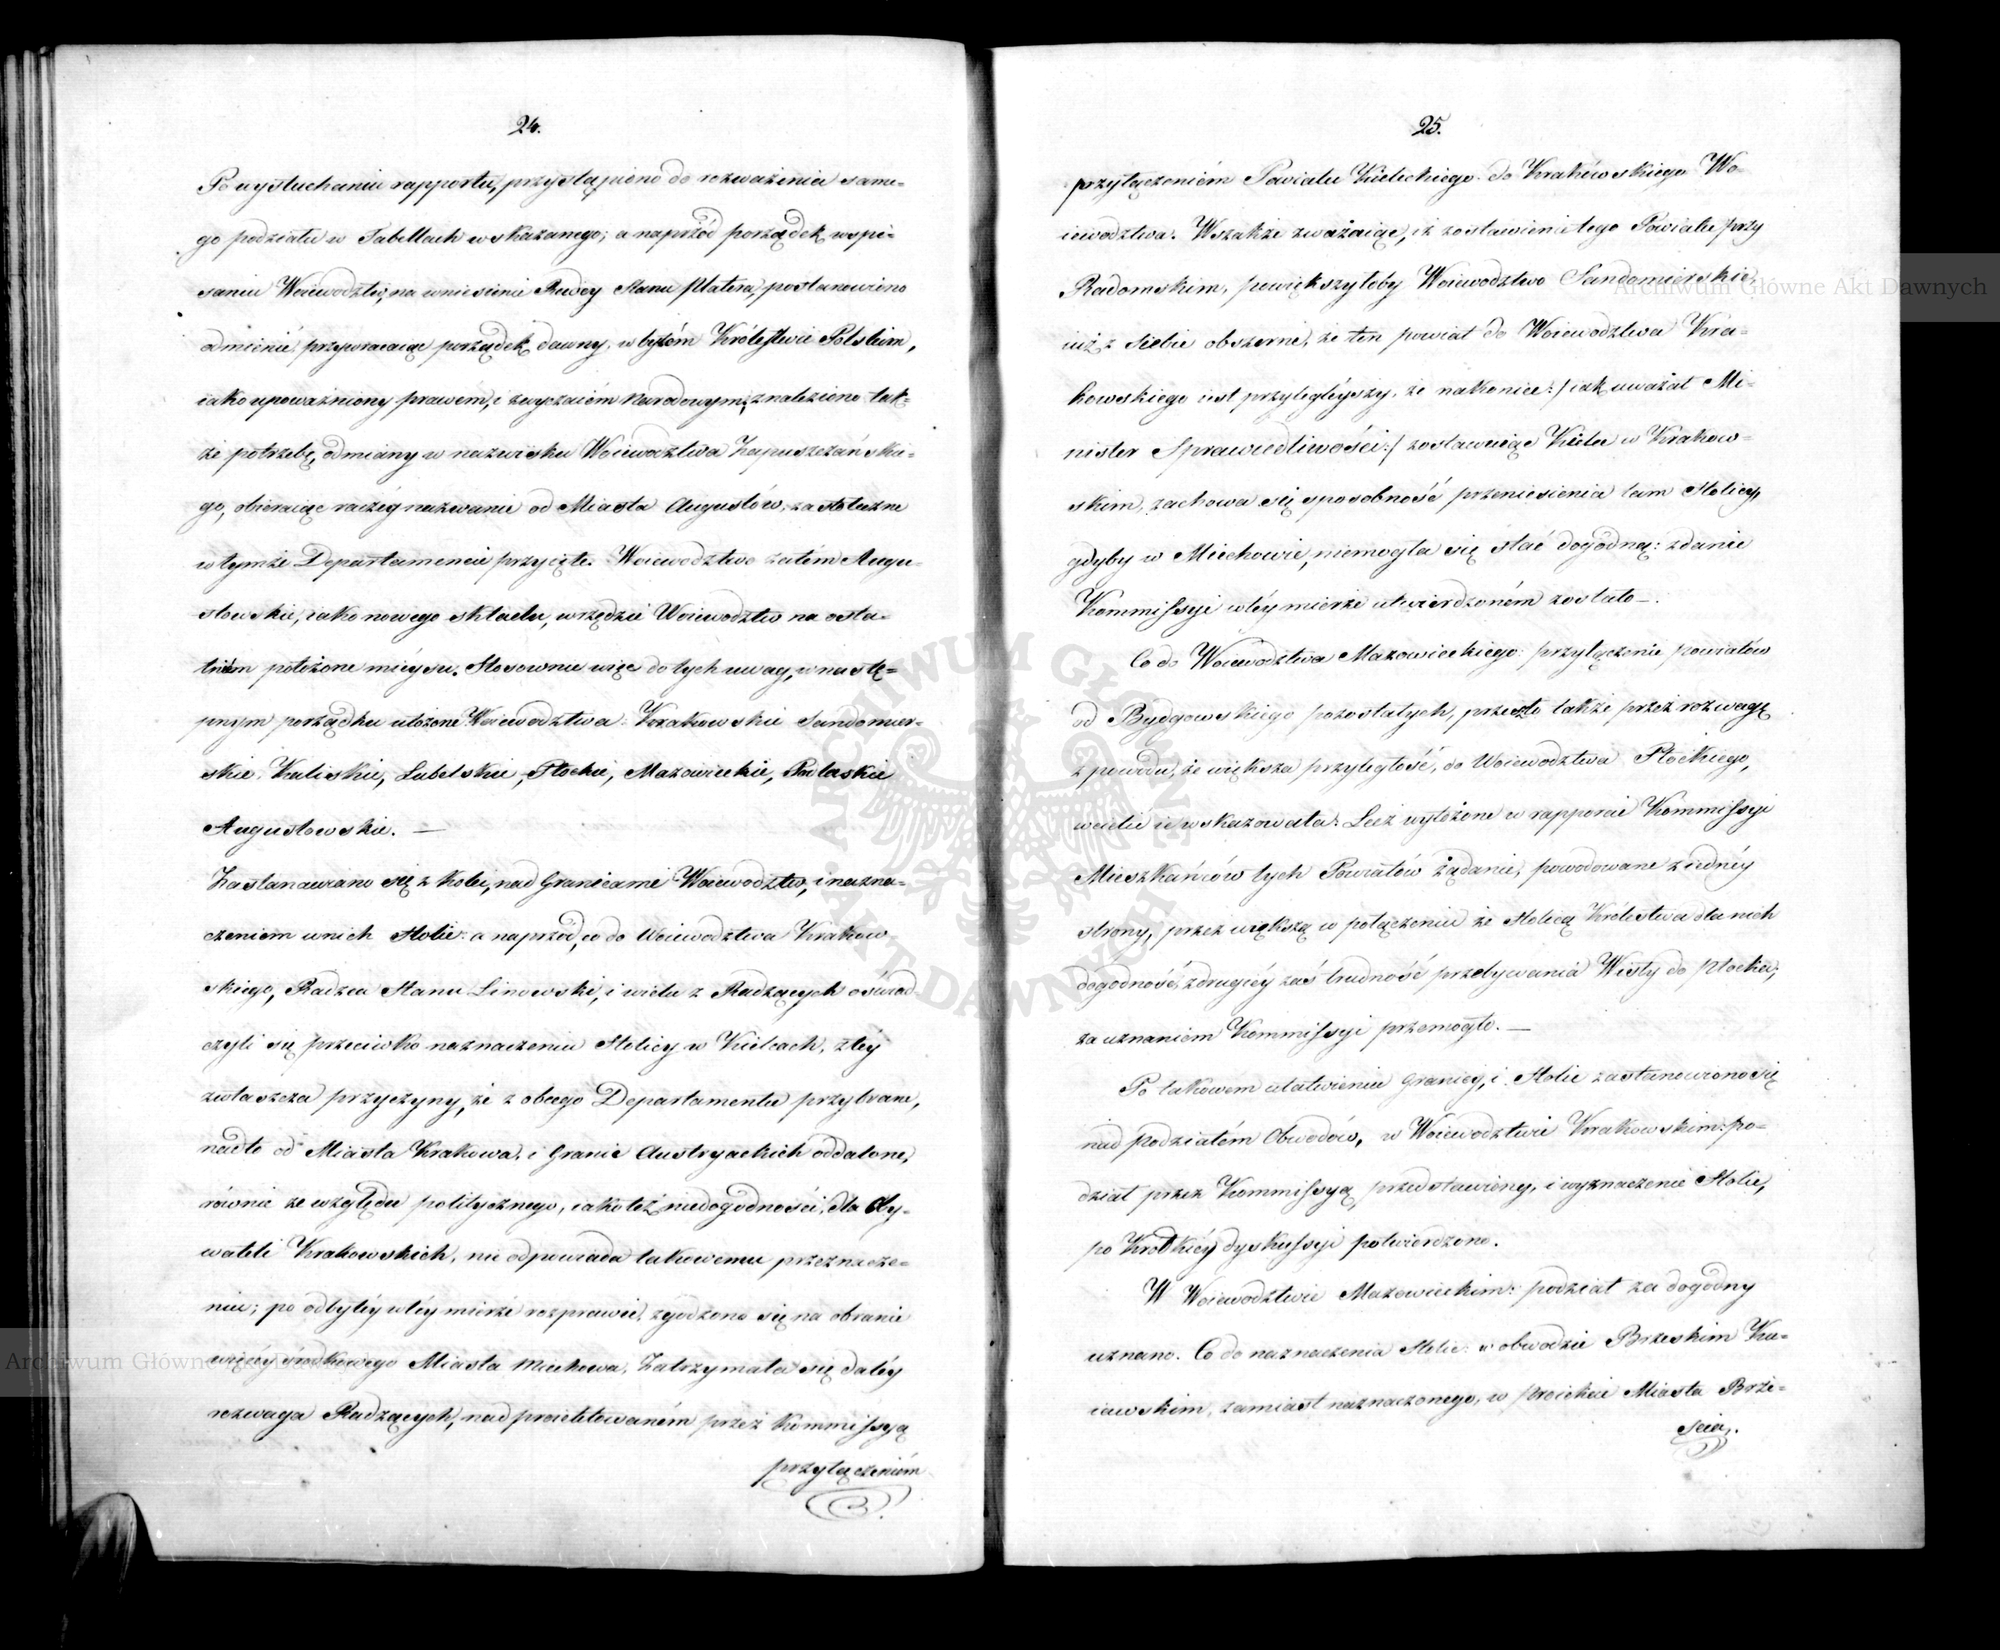 24.
Po wysłuchaniu rapportu, przystąpiono do rozważenia same-
go podziału w Tabellach wskazanego; a naprzód porządek w spi-
saniu Woiewództw, na wniesienie Radcy Stanu Platera, postanowiono
odmienić, przywracaiąc porządek dawny, w byłém Królestwie Polskim,
iako upoważniony prawem, i zwyczaiém Narodowym; znaleziono tak-
że potrzebę, odmiany w nazwisku Woiewództwa Zapuszczańskie-
go, obieraiąc raczéy nazwanie od Miasta Augustów, za stołeczne
w tymże Departamencie przyięte. Woiewództwo zatém Augu-
stowskie, iako nowego składu, w rzędzie Woiewództw na osta-
tniém położone mieyscu. Stosownie więc do tych uwag, w nastę-
pnym porządku ułożone Woiewództwa: Krakowskie Sandomier-
skie, Kaliskie, Lubelskie, Płockie, Mazowieckie, Podlaskie
Augustowskie. —
Zastanawiano się z kolei, nad Granicami Woiewództw, i nazna-
czeniem w nich Stolic: a naprzód, co do Woiewództwa Krakow-
skiego, Radzca Stanu Linowski, i wielu z Radzących oświad-
czyli się przeciwko naznaczeniu Stolicy w Kielcach, z téy
zwłaszcza przyczyny, że z obcego Departamentu przybrane,
nadto od Miasta Krakowa, i Granic Austryackich oddalone,
równie ze względu politycznego, iako też niedogodności, dla Oby-
wateli Krakowskich, nie odpowiada takowemu przeznacze-
niu; po odbytéy w téy mierze rozprawie, zgodzono się na obranie
więcéy środkowego Miasta Miechowa. Zatrzymała się daléy
rozwaga Radzących, nad proiektowaném przez Kommissyą
przyłączeniém
25.
przyłączeniém Powiatu Kieleckiego do Krakówskiego Wo-
iewództwa. Wszakże zważaiąc, iż zostawienie tego Powiatu przy
Radomskim, powiększyłoby Woiewództwo Sandomierskie,
iuż z siebie obszerne, że ten powiat do Woiewództwa Kra-
kowskiego iest przylegléyszy, że nakoniec :/ iak uważał Mi-
nister Sprawiedliwości :/ zostawuiąc Kielce w Krakow-
skim, zachowa się sposobność przeniesienia tam Stolicy,
gdyby w Miechowie, niemogła się stać dogodną: zdanie
Kommissyi w téy mierze utwierdzoném zostało —.
Co do Woiewództwa Mazowieckiego: przyłączenie powiatów
od Bydgowskiego pozostałych, przeszło także przez rozwagę
z powodu, że większa przyległość, do Woiewództwa Płockiego,
wcielić ie wskazowała: Lecz wyłożone w rapporcie Kommissyi
Mieszkańców tych Powiatów żądanie, powodowane z iednéy
strony, przez większą w połączeniu ze Stolicą Królestwa dla nich
dogodność, z drugiéy zaś trudność przebywania Wisły do Płocka,
za uznaniem Kommissyi przemogło. —
Po takowem ułatwieniu Granicy, i Stolic zastanowiono się
nad podziałém Obwodów, w Woiewództwie Krakowskim: po-
dział przez Kommissyą przedstawiony, i wyznaczenie Stolic,
po Krótkiéy dyskussyi potwierdzono.
W Woiewództwie Mazowieckim: podział za dogodny
uznano. Co do naznaczenia Stolic: w obwodzie Brzeskim Ku-
iawskim, zamiast naznaczonego, w proiekcie Miasta Brze-
ścia,
Archiwum Główne Akt Dawnych
Archiwum Główne
ARCHIWUM GŁÓWNE AKT DAWNYCH